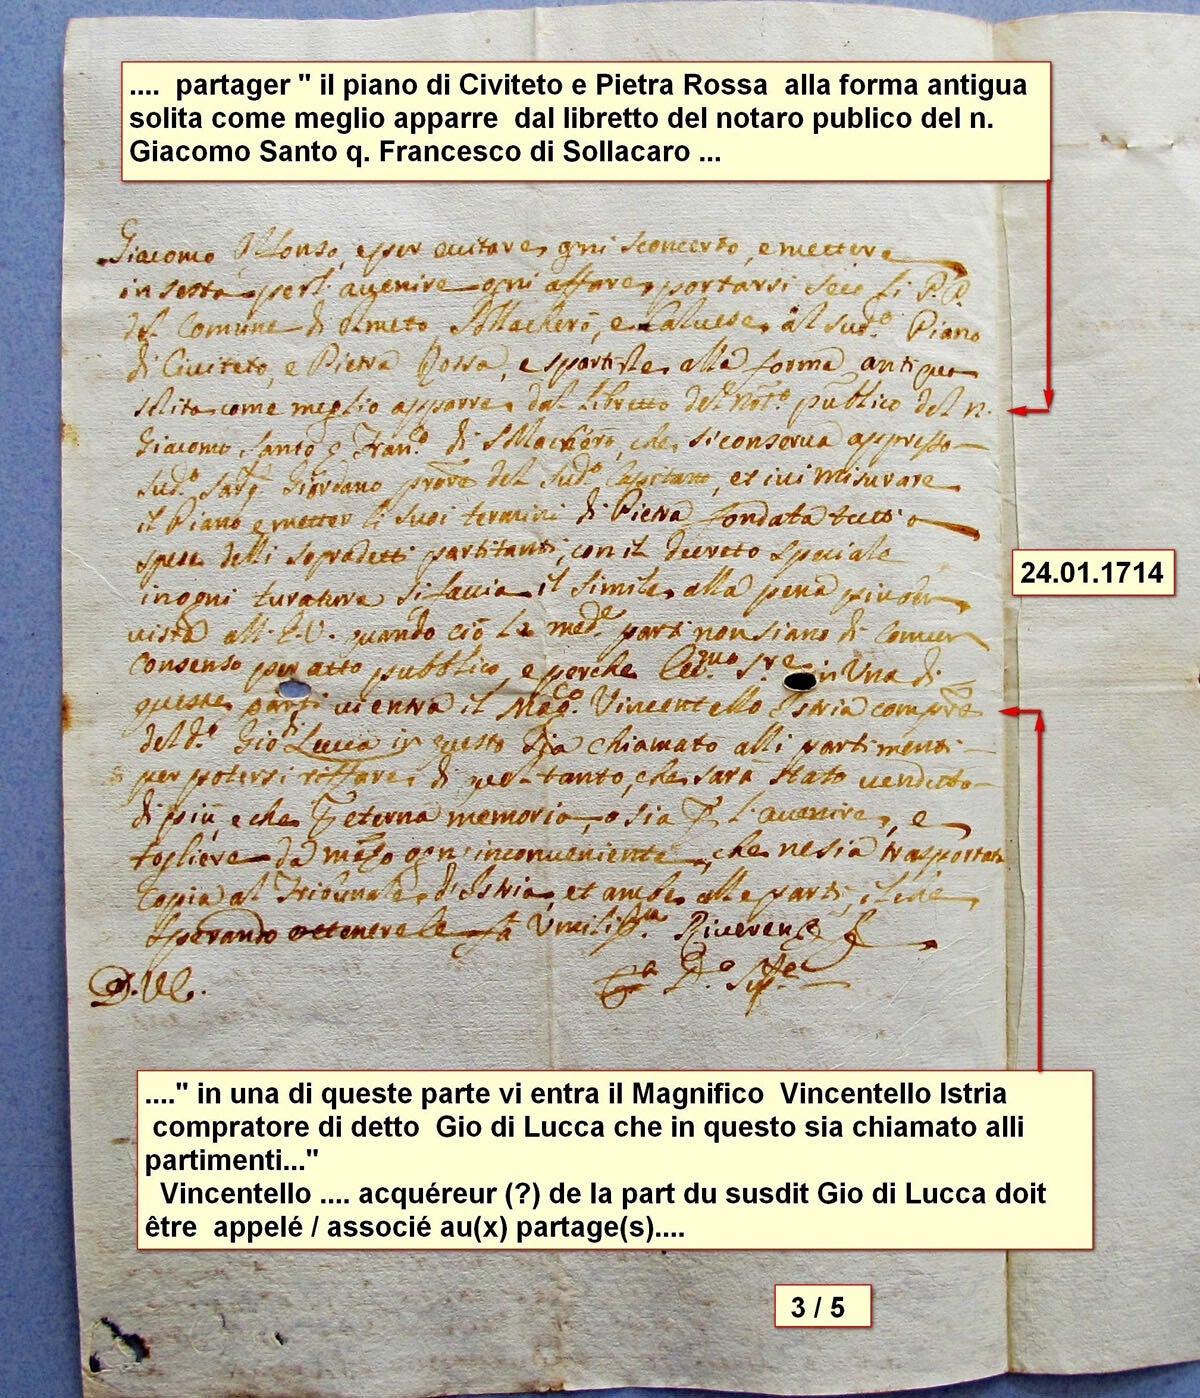 .... partager " il piano di Civiteto e Pietra Rossa alla forma antigua
solita come meglio apparre dal libretto del notaro publico del n.
Giacomo Santo q. Francesco di Sollacaro ...
Giacomo Alfonso, e per evitare ogni sconcerto, e mettere
in sesto per l'avenire ogni affare, portarsi
del Comune di Olmeto Sollacherò, e Calvese, al sud.o Piano
di Civiteto, e Pietra Rossa, e spartirle alla forma antigua
solita come meglio apparre dal libretto del Not.o publico del n.
Giacomo Santo q. Fran.o di Sollacarò, che si conserva appresso
sud.o Giordano del sud.o Capitano, et ivi misurare
il Piano e metter li suoi termini di Pietra fondata tutto a
spese delli sopradetti partitanti, con il decreto speciale
in ogni faccia il simile alla pena
vista quando ciò le med.e parti non siano di comun
consenso per atto pubblico, e perche in una di
queste parti vi entra il Mag.co Vincentello Istria
del d.o Gio di Lucca in questo sia chiamato alli partimenti
per potersi riffare di per tanto, che sarà stato venduto
di più, e che eterna memoria, o sia l'avenire, e
togliere da mezo ogn'inconveniente, che ne sia trasportata
Copia al Tribunale d'Istria, et anche alle parti, il che
sperando ottenere le fà Umiliss.ma Riverenza
24.01.1714
...." in una di queste parte vi entra il Magnifico Vincentello Istria
compratore di detto Gio di Lucca che in questo sia chiamato alli
partimenti..."
Vincentello .... acquéreur (?) de la part du susdit Gio di Lucca doit
être appelé / associé au(x) partage(s)....
3 / 5